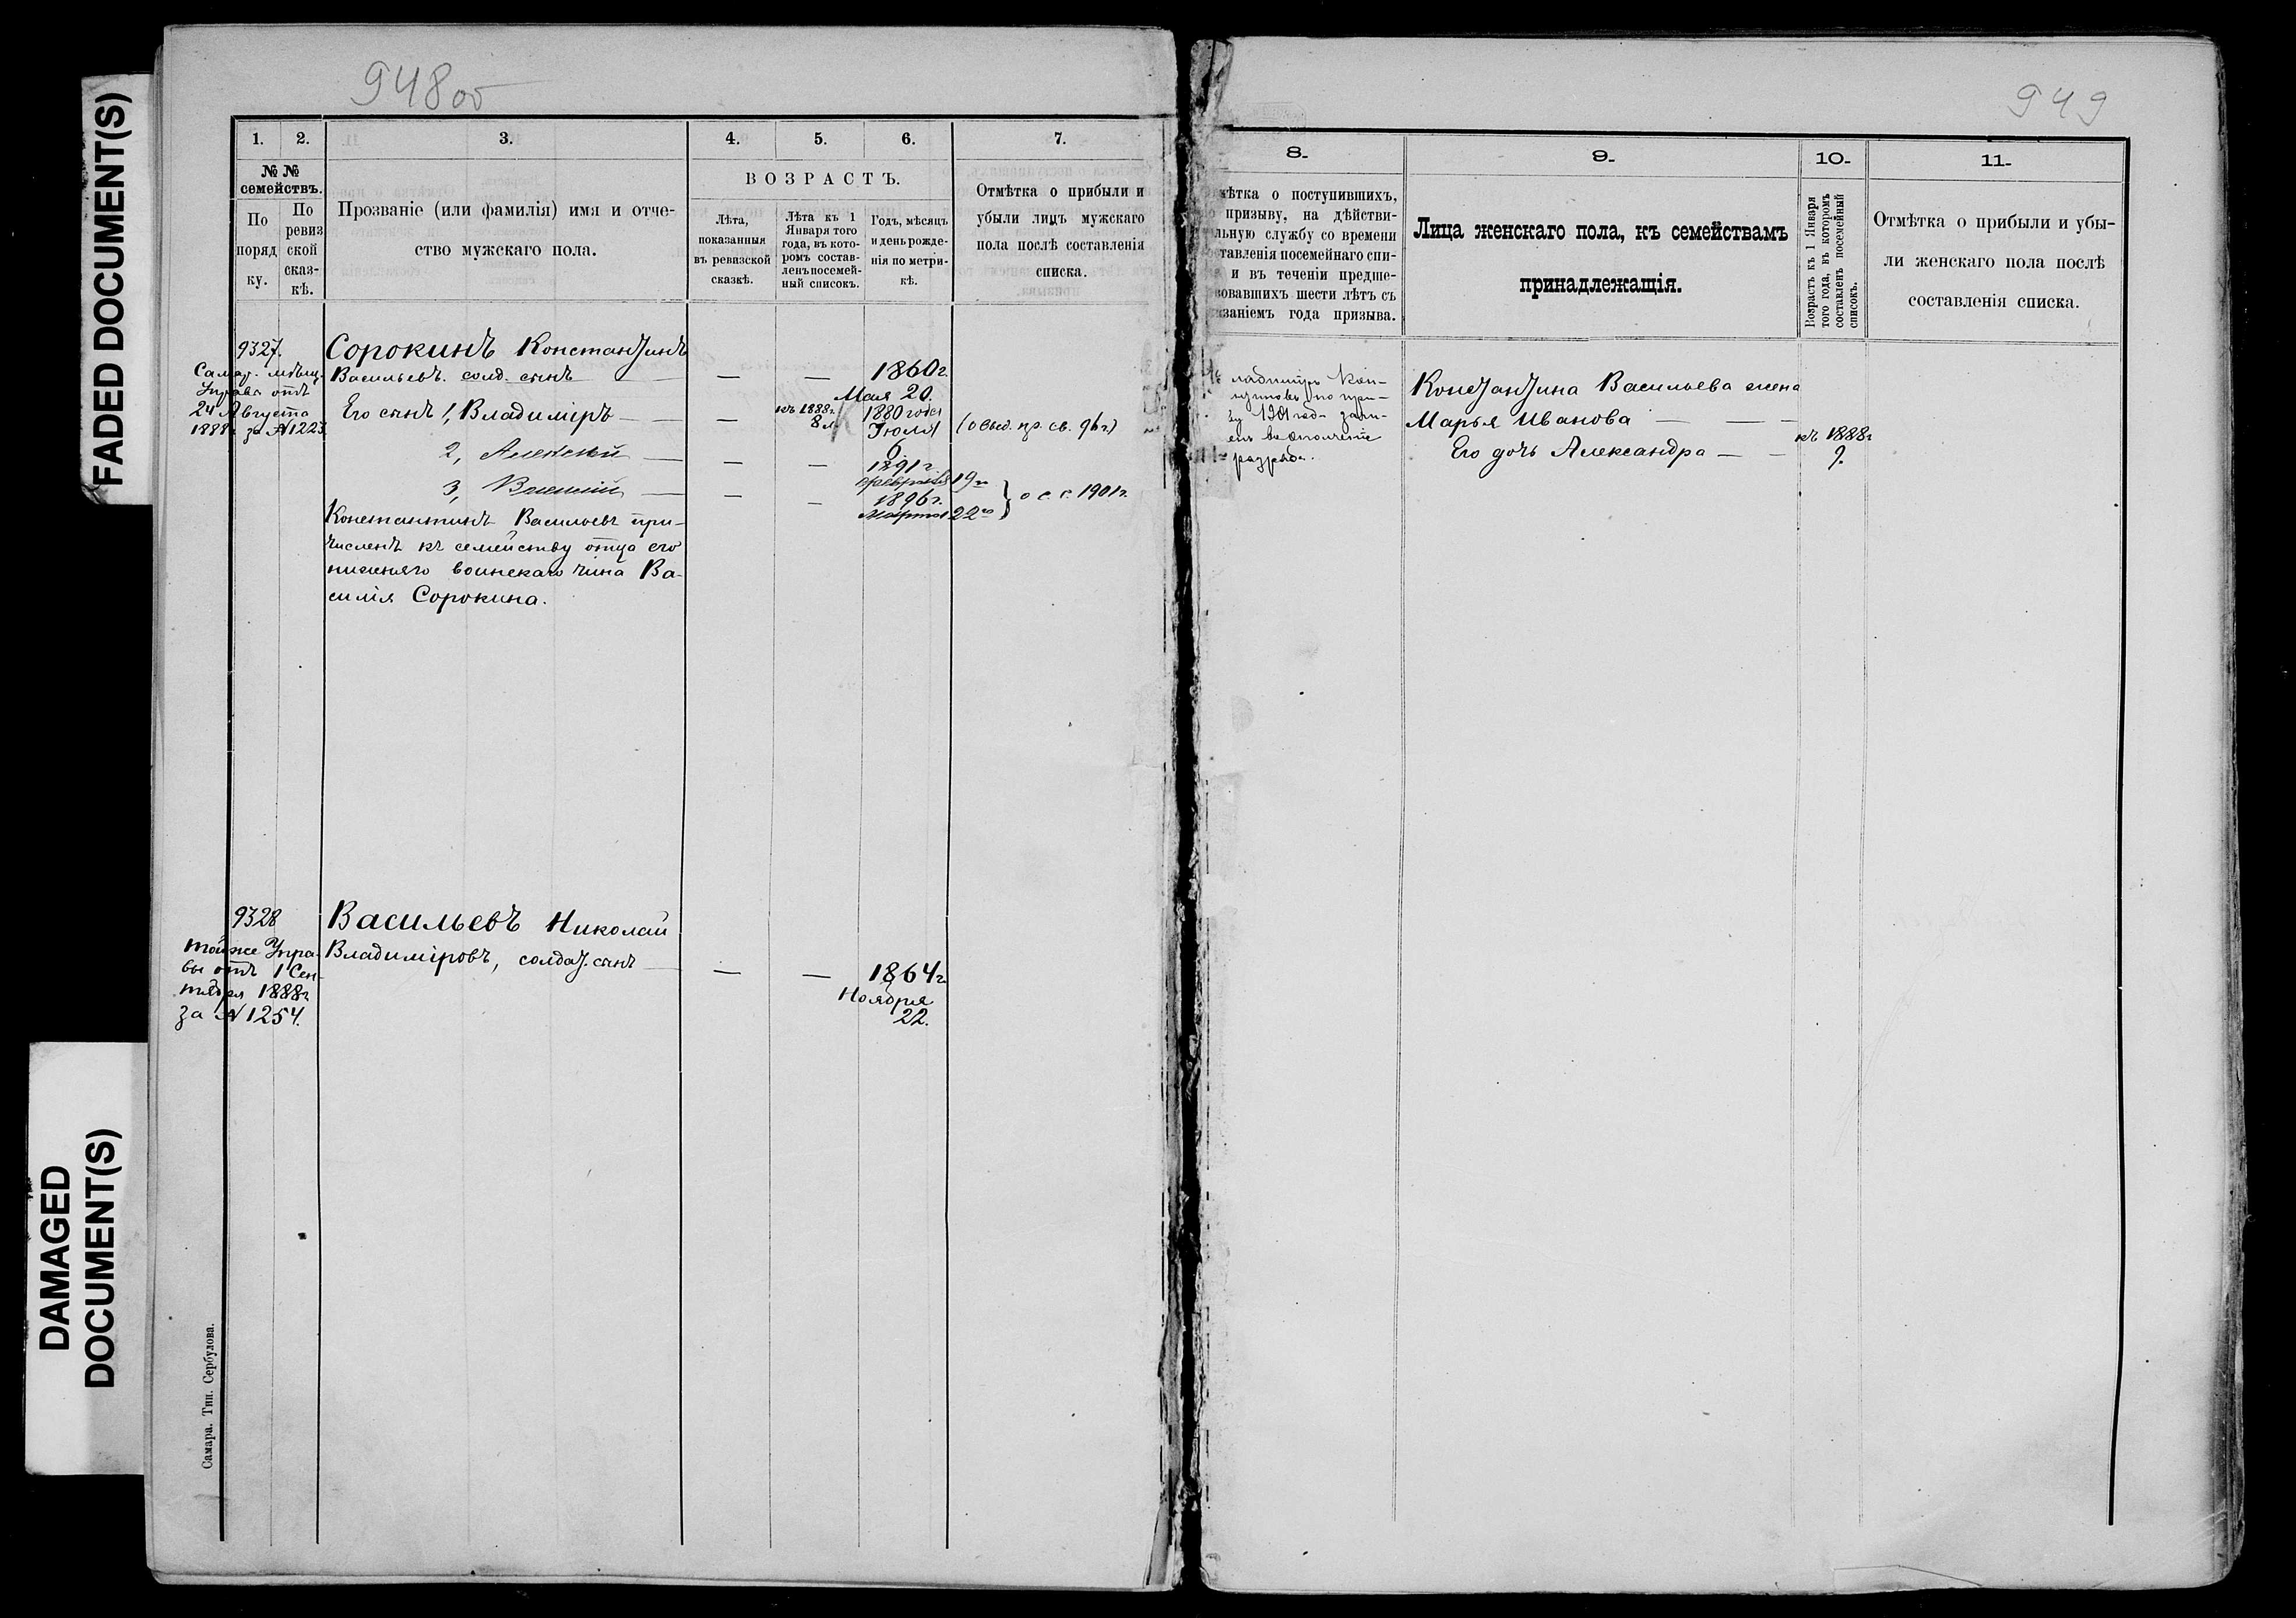 FADED DOCUMENT(S)
DAMAGED
DOCUMENT(S)
948об
1. 2. 3. 4. 5. 6. 7.
№ №
семействъ.
По
поряд
ку.
По
ревиз
ской
сказ-
кѣ.
Прозваніе (или фамилія) имя и отче-
ство мужскаго пола.
ВОЗРАСТЪ.
Лѣта,
показанныя
въ ревизской
сказкѣ.
Лѣта къ 1
Января того
года, въ кото-
ромъ состав-
ленъ посемей-
ный списокъ.
Годъ, мѣсяцъ
и день рожде-
нія по метри-
кѣ.
Отмѣтка о прибыли и
убыли лицъ мужскаго
пола послѣ составленія
списка.
9327.
Самар. мѣщ.
Управа отъ
24 Августа
1888 за №1223
Сорокинъ Константинъ
Васильевъ. солд. сынъ — — — 1860г.
Мая 20.
Его сынъ 1, Владиміръ — — къ 1888г. 8 л. 1880 года
Іюля 6.
2, Алексѣй — — — 1891 г.
февраля 19го
3, Василій — — — 1896г.
Марта 22го
о с. с. 1901г.
Константинъ Васильевъ при-
численъ къ семейству отца его
нижняго воинскаго чина Ва-
силія Сорокина.
9328
той же Упра-
вы отъ 1 Сен-
тября 1888г
за № 1254.
Васильевъ Николай
Владиміровъ, солдат. сынъ — — — 1864г.
Ноября
22.
Самара. Тип. Сербулова.
949
8. 9. 10. 11.
ѣтка о поступившихъ,
призыву, на дѣйстви-
льную службу со времени
ставленія посемейнаго спи-
и въ теченіи предше-
вовавшихъ шести лѣтъ съ
азаніемъ года призыва.
Лица женскаго пола, къ семействамъ
принадлежащія.
Возрастъ къ 1 Января
того года, въ которомъ
составленъ посемейный
списокъ.
Отмѣтка о прибыли и убы-
ли женскаго пола послѣ
составленія списка.
ладиміръ Кон-
по при-
1901 год
разряда.
Константина Васильева жена
Марья Иванова — — —
Его дочь Александра — — къ 1888г
9.